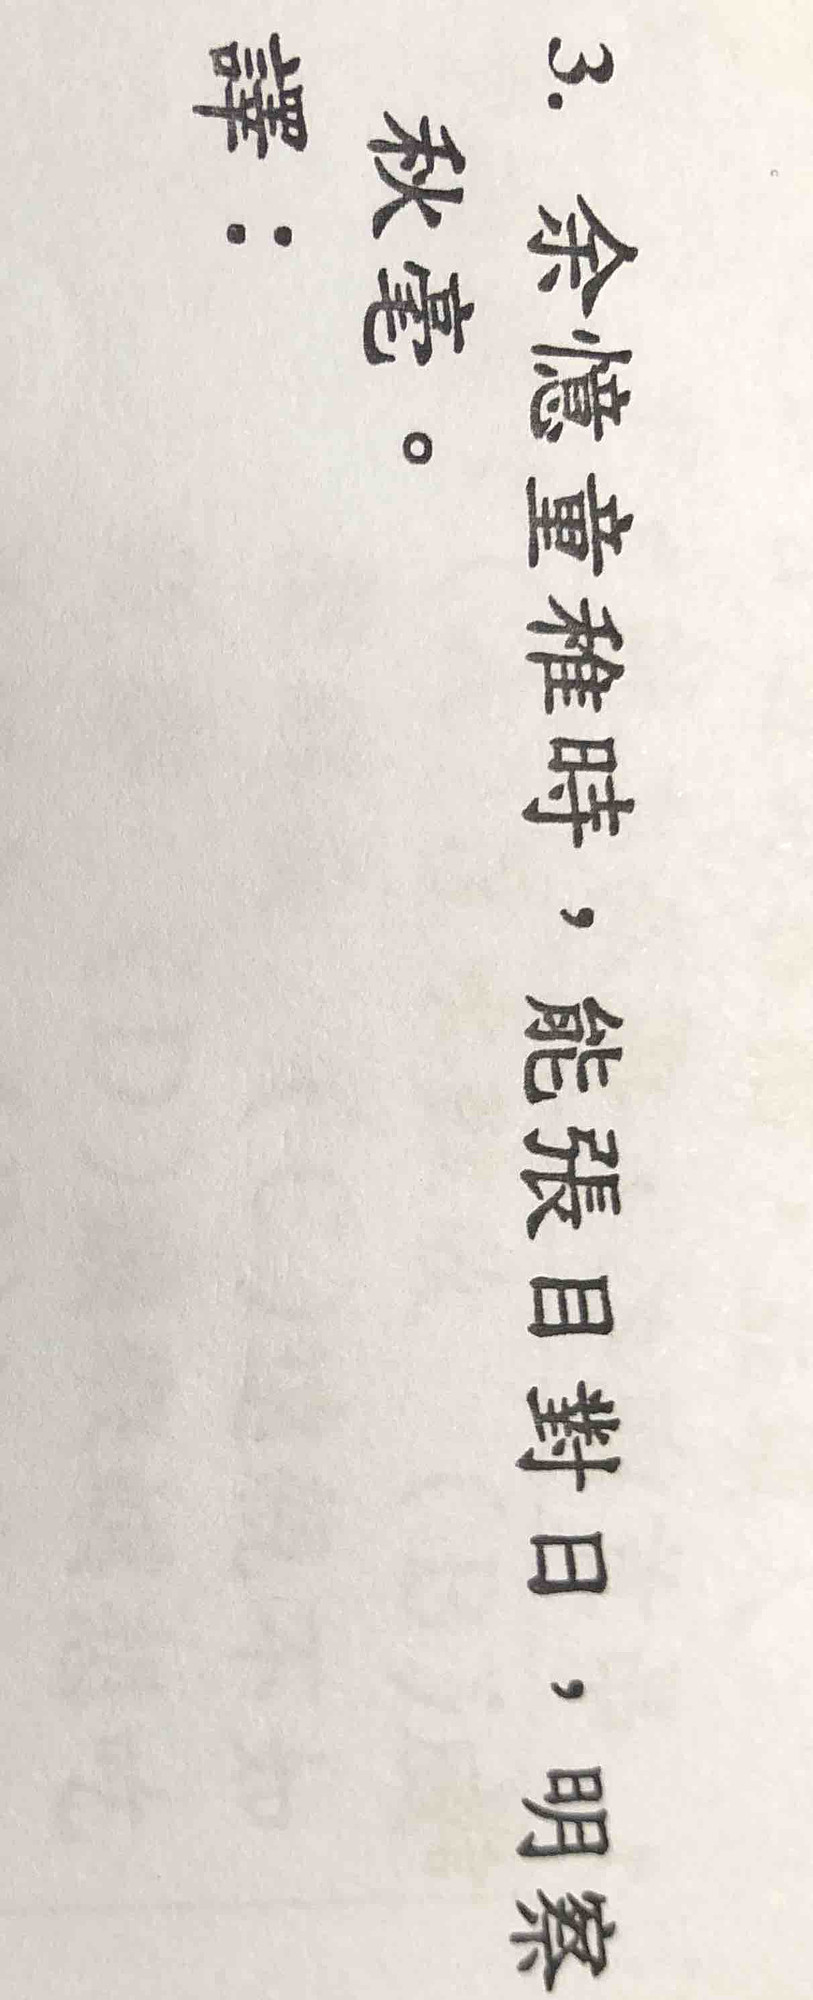 3. 余憶童稚時，能張目對日，明察
秋毫。
譯：